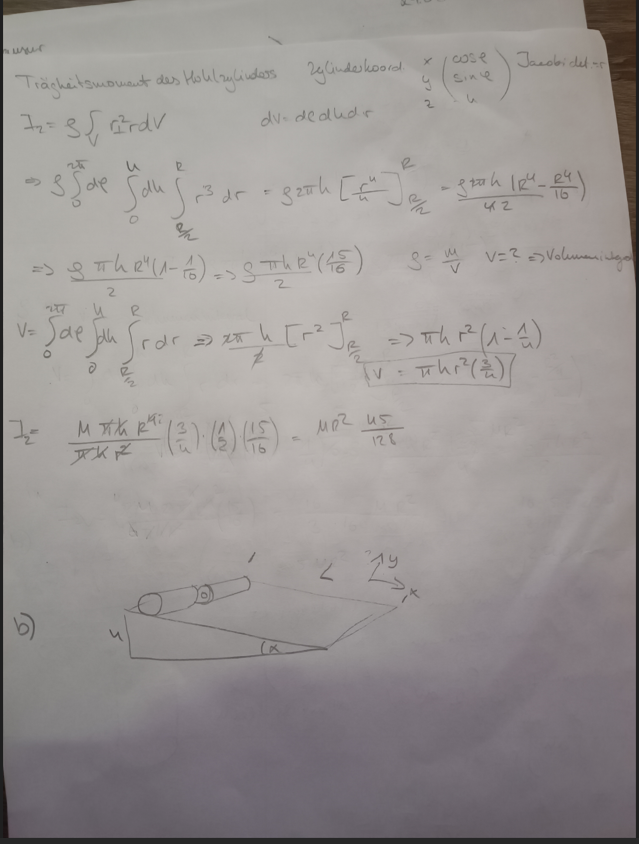 Trägheitsmoment des Hohlzylinders Zylinderkoord x y z (cosφ sinφ h) Jacobidet. r
I_z = ρ ∫_V r_⊥² r dV dV = dφ dh dr
=> ρ ∫_0^{2π} dφ ∫_0^h dh ∫_{R/2}^R r³ dr = ρ 2π h [r⁴/4]_{R/2}^R = ρ 2π h/(4 2) (R⁴ - R⁴/16)
=> ρ π h R⁴/2 (1 - 1/16) => ρ π h R⁴/2 (15/16) ρ = M/V V = ? => Volumenintegral
V = ∫_0^{2π} dφ ∫_0^h dh ∫_{R/2}^R r dr => 2π h/2 [r²]_{R/2}^R => π h r² (1 - 1/4)
V = π h r² (3/4)
I_z = M π h R⁴/(π h r²) (3/4) · (1/2) (15/16) = MR² 45/128
L y
x
b) h α